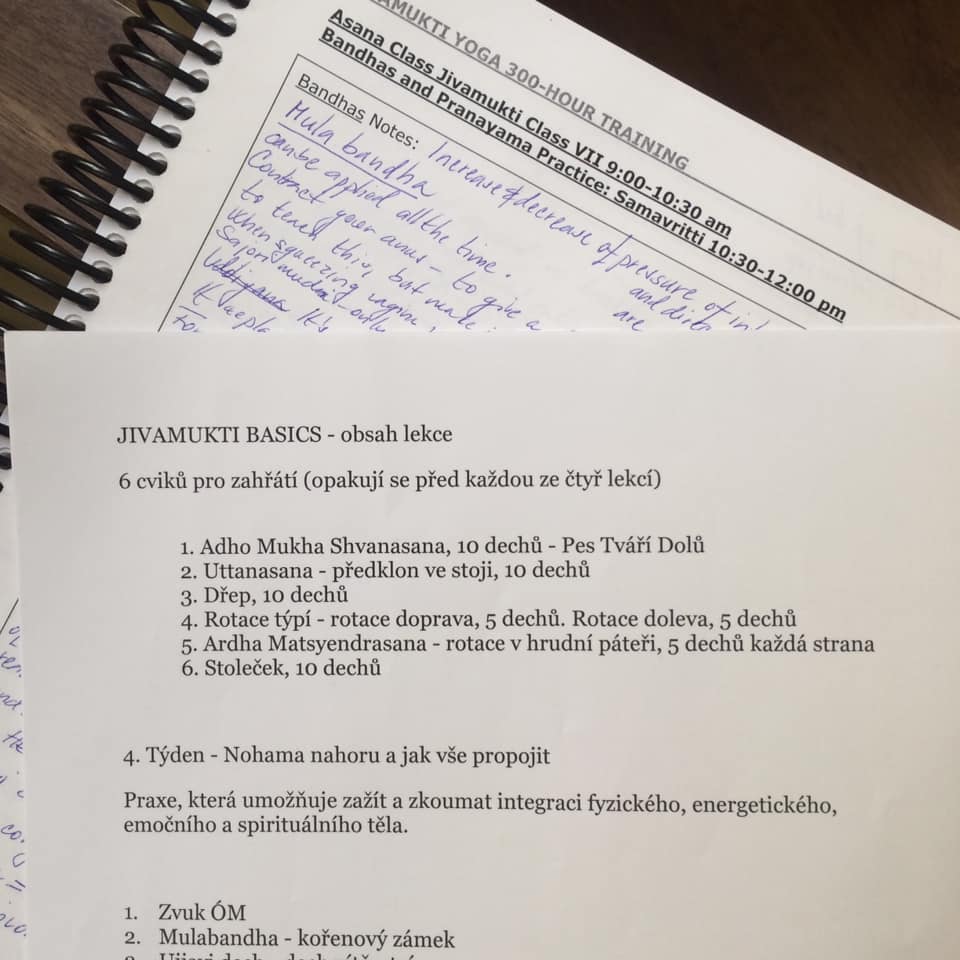 MUKTI YOGA 300-HOUR TRAINING
Asana Class Jivamukti Class VII 9:00-10:30 am
Bandhas and Pranayama Practice: Samavritti 10:30-12:00 pm
Bandhas Notes: Increase & decrease of pressure of
Mula bandha and
can be applied all the time. are
Contract your anus - to give a
to teach this, but make
when squeezing vagina,
It's
It
JIVAMUKTI BASICS - obsah lekce
6 cviků pro zahřátí (opakují se před každou ze čtyř lekcí)
1. Adho Mukha Shvanasana, 10 dechů - Pes Tváří Dolů
2. Uttanasana - předklon ve stoji, 10 dechů
3. Dřep, 10 dechů
4. Rotace týpí - rotace doprava, 5 dechů. Rotace doleva, 5 dechů
5. Ardha Matsyendrasana - rotace v hrudní páteři, 5 dechů každá strana
6. Stoleček, 10 dechů
4. Týden - Nohama nahoru a jak vše propojit
Praxe, která umožňuje zažít a zkoumat integraci fyzického, energetického,
emočního a spirituálního těla.
1. Zvuk ÓM
2. Mulabandha - kořenový zámek